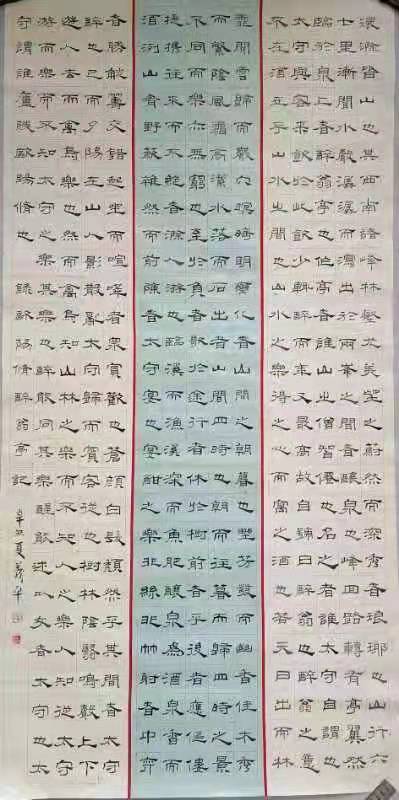 環滁皆山也其西南諸峰林壑尤美望之蔚然而深秀者琅琊也山行六
七里漸聞水聲潺潺而瀉出於兩峯之間者釀泉也峰回路轉有亭翼然
臨於泉上者醉翁亭也作亭者誰山之僧智僊也名之者誰太守自謂也
太守與客來飲於此飲少輒醉而年又最高故自號曰醉翁也醉翁之意
不在酒在乎山水之間也山水之樂得之心而寓之酒也若夫日出而林
霏開雲歸而巖穴暝晦明變化者山間之朝暮也野芳發而幽香佳木秀
而繁陰風霜高潔水落而石出者山間之四時也朝而往暮而歸四時之景
不同而樂亦無窮也至於負者歌於途行者休於樹前者呼後者應傴僂
提攜往來而不絕者滁人遊也臨溪而漁溪深而魚肥釀泉爲酒泉香而
酒洌山肴野蔌雜然而前陳者太守宴也宴酣之樂非絲非竹射者中弈
者勝觥籌交錯起坐而喧嘩者衆賓歡也蒼顔白髮頹然乎其間者太守
醉也已而夕陽在山人影散亂太守歸而賓客從也樹林陰翳鳴聲上下
遊人去而禽鳥樂也然而禽鳥知山林之樂而不知人之樂人知從太守
游而樂而不知太守之樂其樂也醉能同其樂醒能述以文者太守也太
守謂誰廬陵歐陽脩也 錄歐陽脩醉翁亭記
辛丑夏